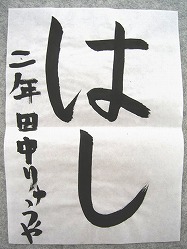 はし
二年田中りょうや